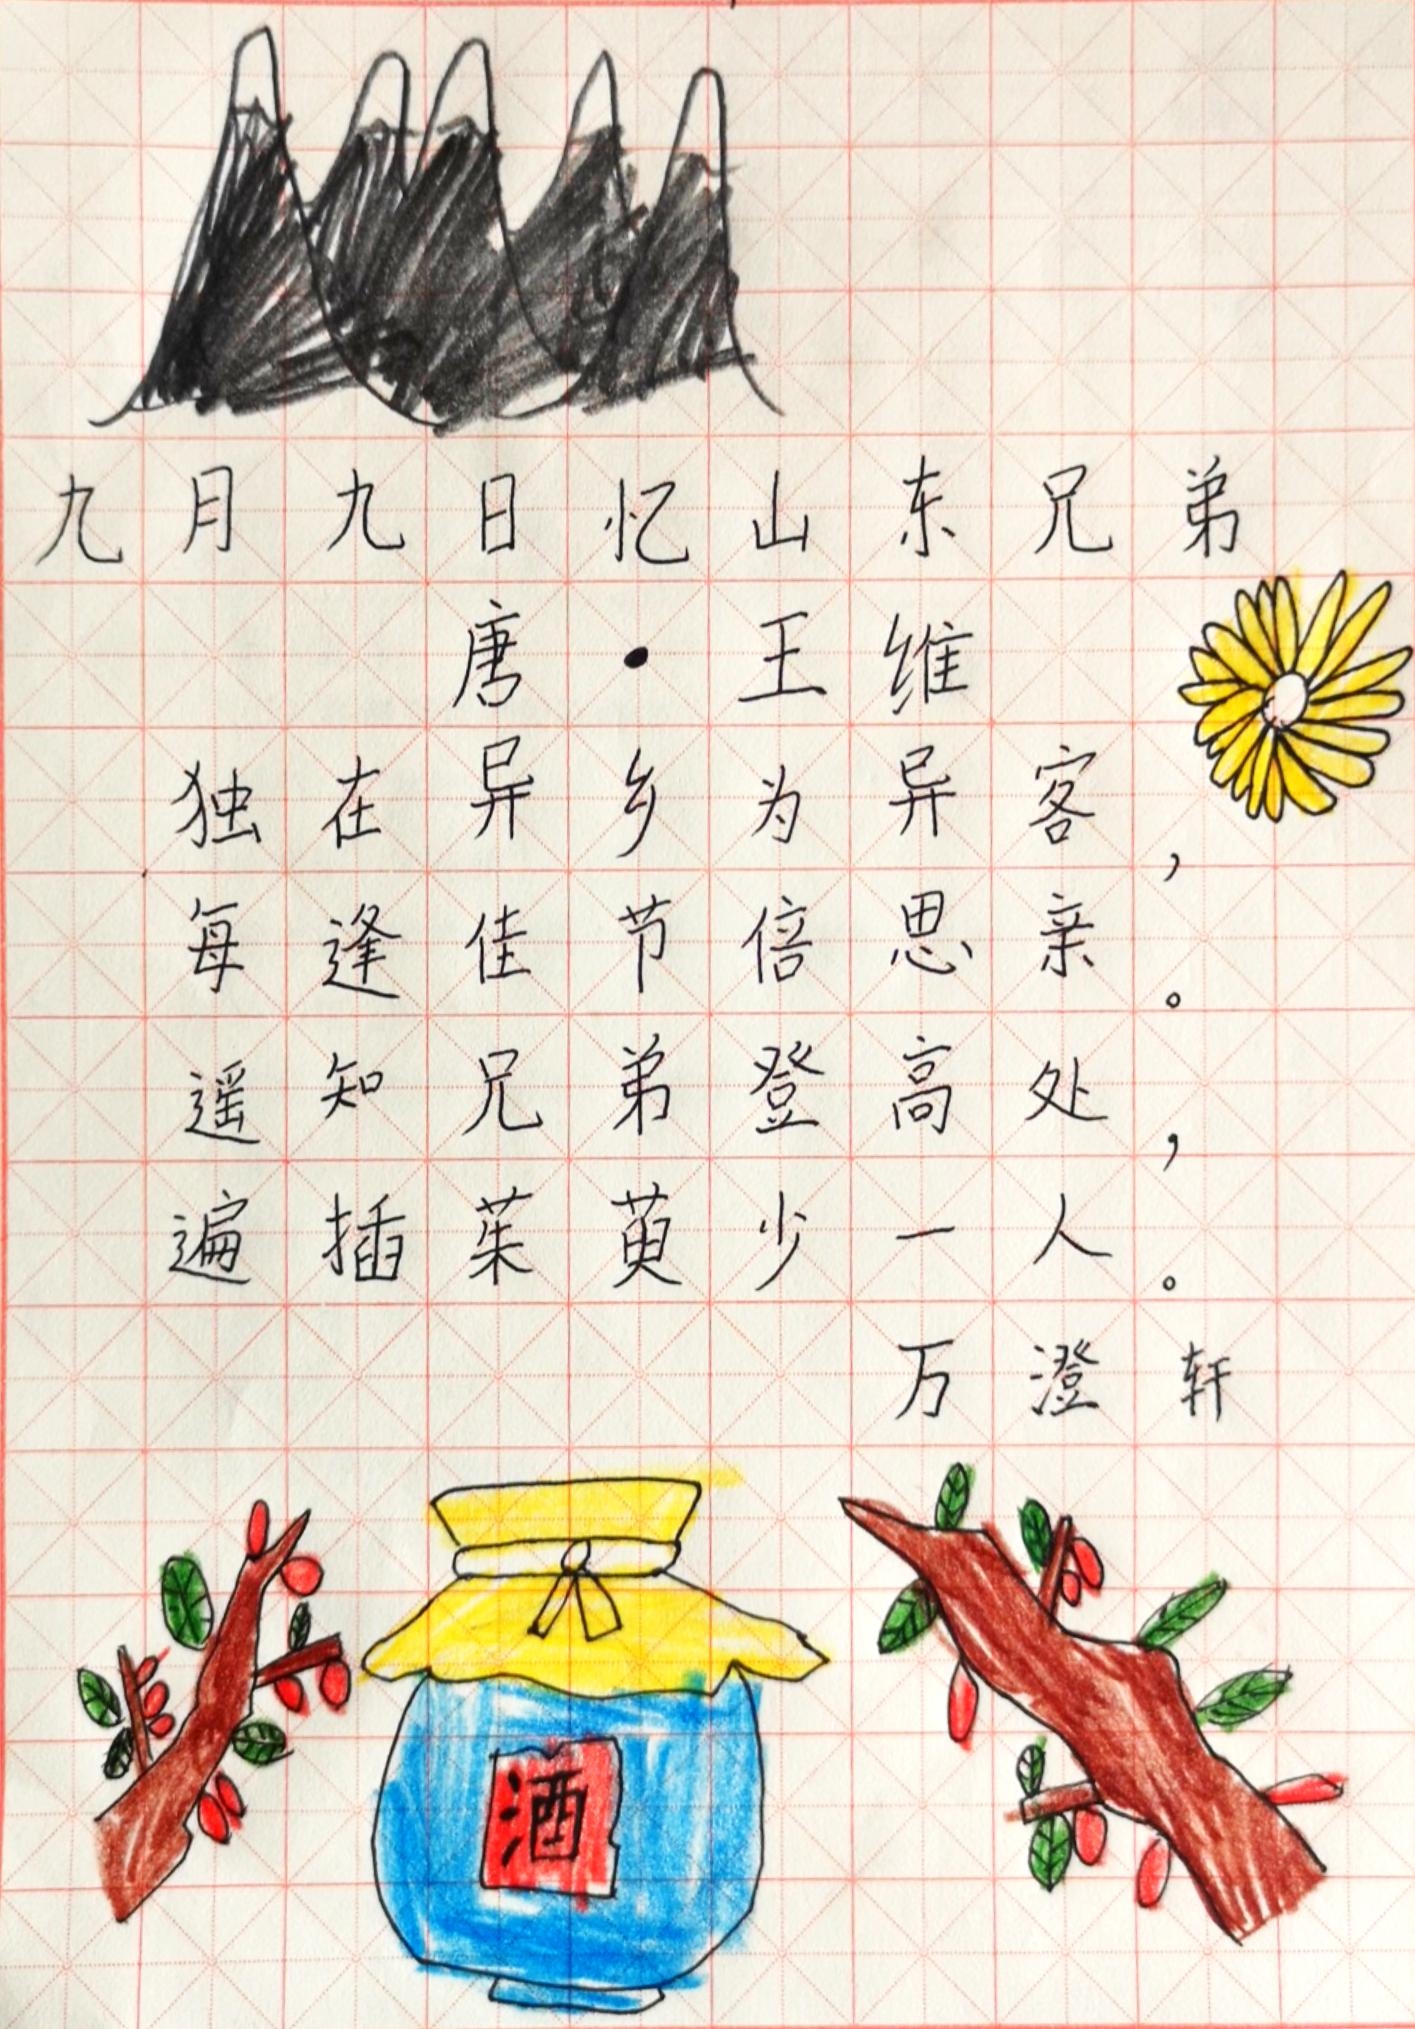 九月九日忆山东兄弟
唐·王维
独在异乡为异客，
每逢佳节倍思亲。
遥知兄弟登高处，
遍插茱萸少一人。
万澄轩
酒